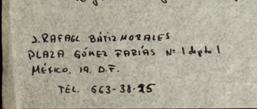 J. RAFAEL BÁTIZ MORALES
PLAZA GÓMEZ FARÍAS Nº 1 depto 1
MÉXICO, 19, D.F.
TEL. 663-38-25